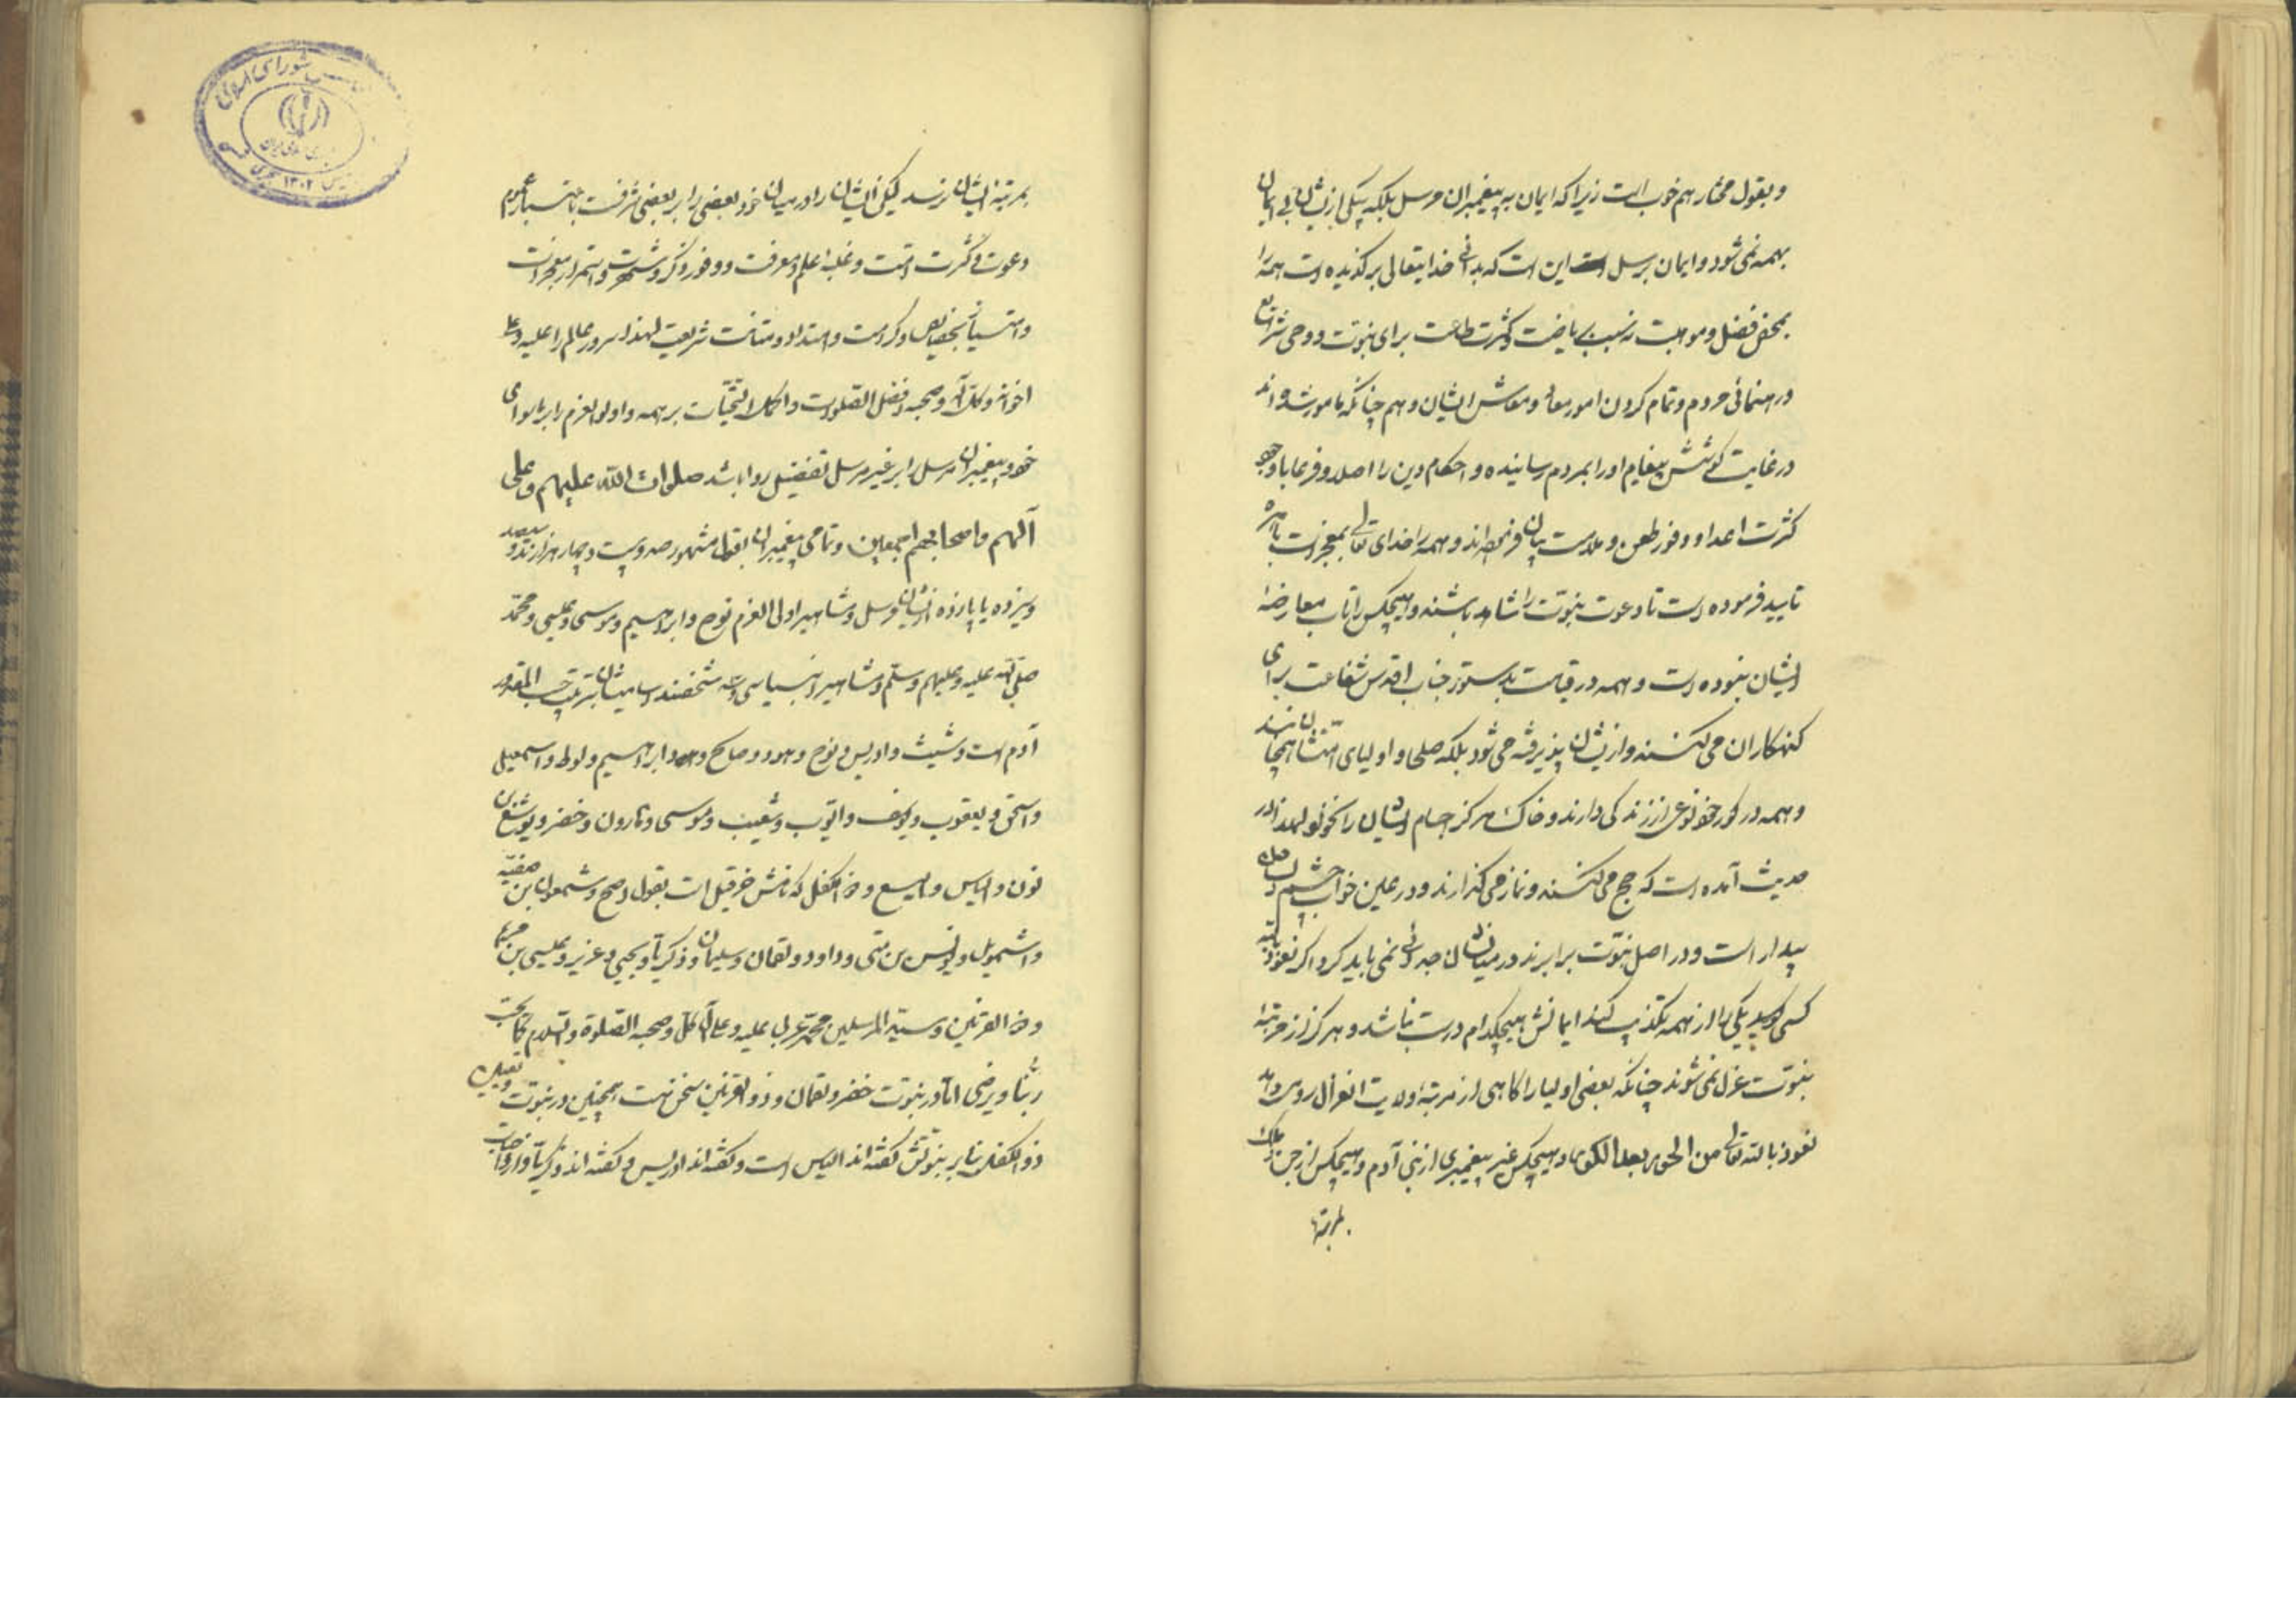 و بقول مختار هم خوب است زیرا که ایمان به پیغمبران مرسل بلکه بیکی ازیشان بی ایمان
بهمه نمی شود و ایمان برسل این است که بدانی خدایتعالی برگزیده است همه را
بمحض فضل و موهبت نه بسبب ریاضت و کثرت طاعت برای نبوت و وحی شرایع
و رهنمائی مردم و تمام کردن امور معاد و معاش ایشان و هم چنانکه مامور شده اند
در غایت کوشش پیغام او را بمردم رسانیده و احکام دین را اصلا و فرعا با وجود
کثرت اعدا و وفور طعن و ملامت بیان فرموده اند و همه را خدای تعالی بمعجزات باهره
تایید فرموده است تا دعوت نبوت را شاهد باشند و هیچکس را تاب معارضهٔ
ایشان نبوده است و همه در قیامت بدستور جناب اقدس شفاعت برای
کنهکاران می کنند و ازیشان پذیرفته می شود بلکه صلحا و اولیای امتشان همچنانند
و همه در کور خود نوعی از زندکی دارند و خاک هرکز اجسام ایشان را نخورد لهذا در
حدیث آمده است که حج می کنند و نماز می کذارند و در عین خواب چشم دل شان
بیدار است و در اصل نبوت برابرند در میان شان جدائی نمی باید کرد اکر نعوذ بالله
کسی یکی را از همه تکذیب کند ایمانش بهیچکدام درست نباشد و هرکز از مرتبهٔ
نبوت عزل نمی شوند چنانکه بعضی اولیا را کاهی از مرتبهٔ ولایت انعزال رو میدهد
نعوذ بالله تعالی من الحور بعد الکور و هیچکس غیر پیغمبری از بنی آدم و هیچکس از جن و ملک
بمرتبهٔ
بمرتبهٔ ایشان نرسد لیکن ایشان را در میان خود بعضی را بر بعضی شرفت باعتبار عموم
دعوت و کثرت امت و غلبهٔ علم و معرفت و وفور ذکر و شهرت و استمرار معجزات
و امتیاز بخصایص و کرامت و امتداد و متانت شریعت لهذا سرور عالم را علیه و علی
اخوانه و کل آله و صحبه افضل الصلوات و اکمل التحیات بر همه و اولو العزم را بر ماسوای
خود و پیغمبران مرسل را بر غیر مرسل تفضیل روا باشد صلوات الله علیهم و علی
آلهم و اصحابهم اجمعین و تمامی پیغمبران بقول مشهور صد و بیست و چهار هزارند و سیصد
و سیزده یا پانزده ازیشان مرسل و مشاهیر اولی العزم نوح و ابراهیم و موسی و عیسی و محمد
صلی الله علیه و علیهم و سلم و مشاهیر انبیا سی و سه شخصند اسامیشان بترتیب حسب المقدور
آدم است و شیث و ادریس و نوح و هود و صالح و ابراهیم و لوط و اسمعیل
و اسحق و یعقوب و یوسف و ایوب و شعیب و موسی و هارون و خضر و یوشع بن
نون و الیاس و الیسع و ذا الکفل که نامش حزقیل است بقول اصح و شمعون بن صفیه
و اشمویل و یونس بن متی و داود و لقمان و سلیمان و زکریا و یحیی و عزیر و عیسی بن مریم
و ذو القرنین و سید المرسلین محمد عربی علیه و علی آله کل و صحبه الصلوة و السلام کما یحب
ربنا و یرضی اما در نبوت خضر و لقمان و ذو القرنین سخن است همچنین در نبوت و تعیین
ذو الکفل بنا بر نبوتش کفته اند الیاس است و کفته اند ادریس و کفته اند زکریا